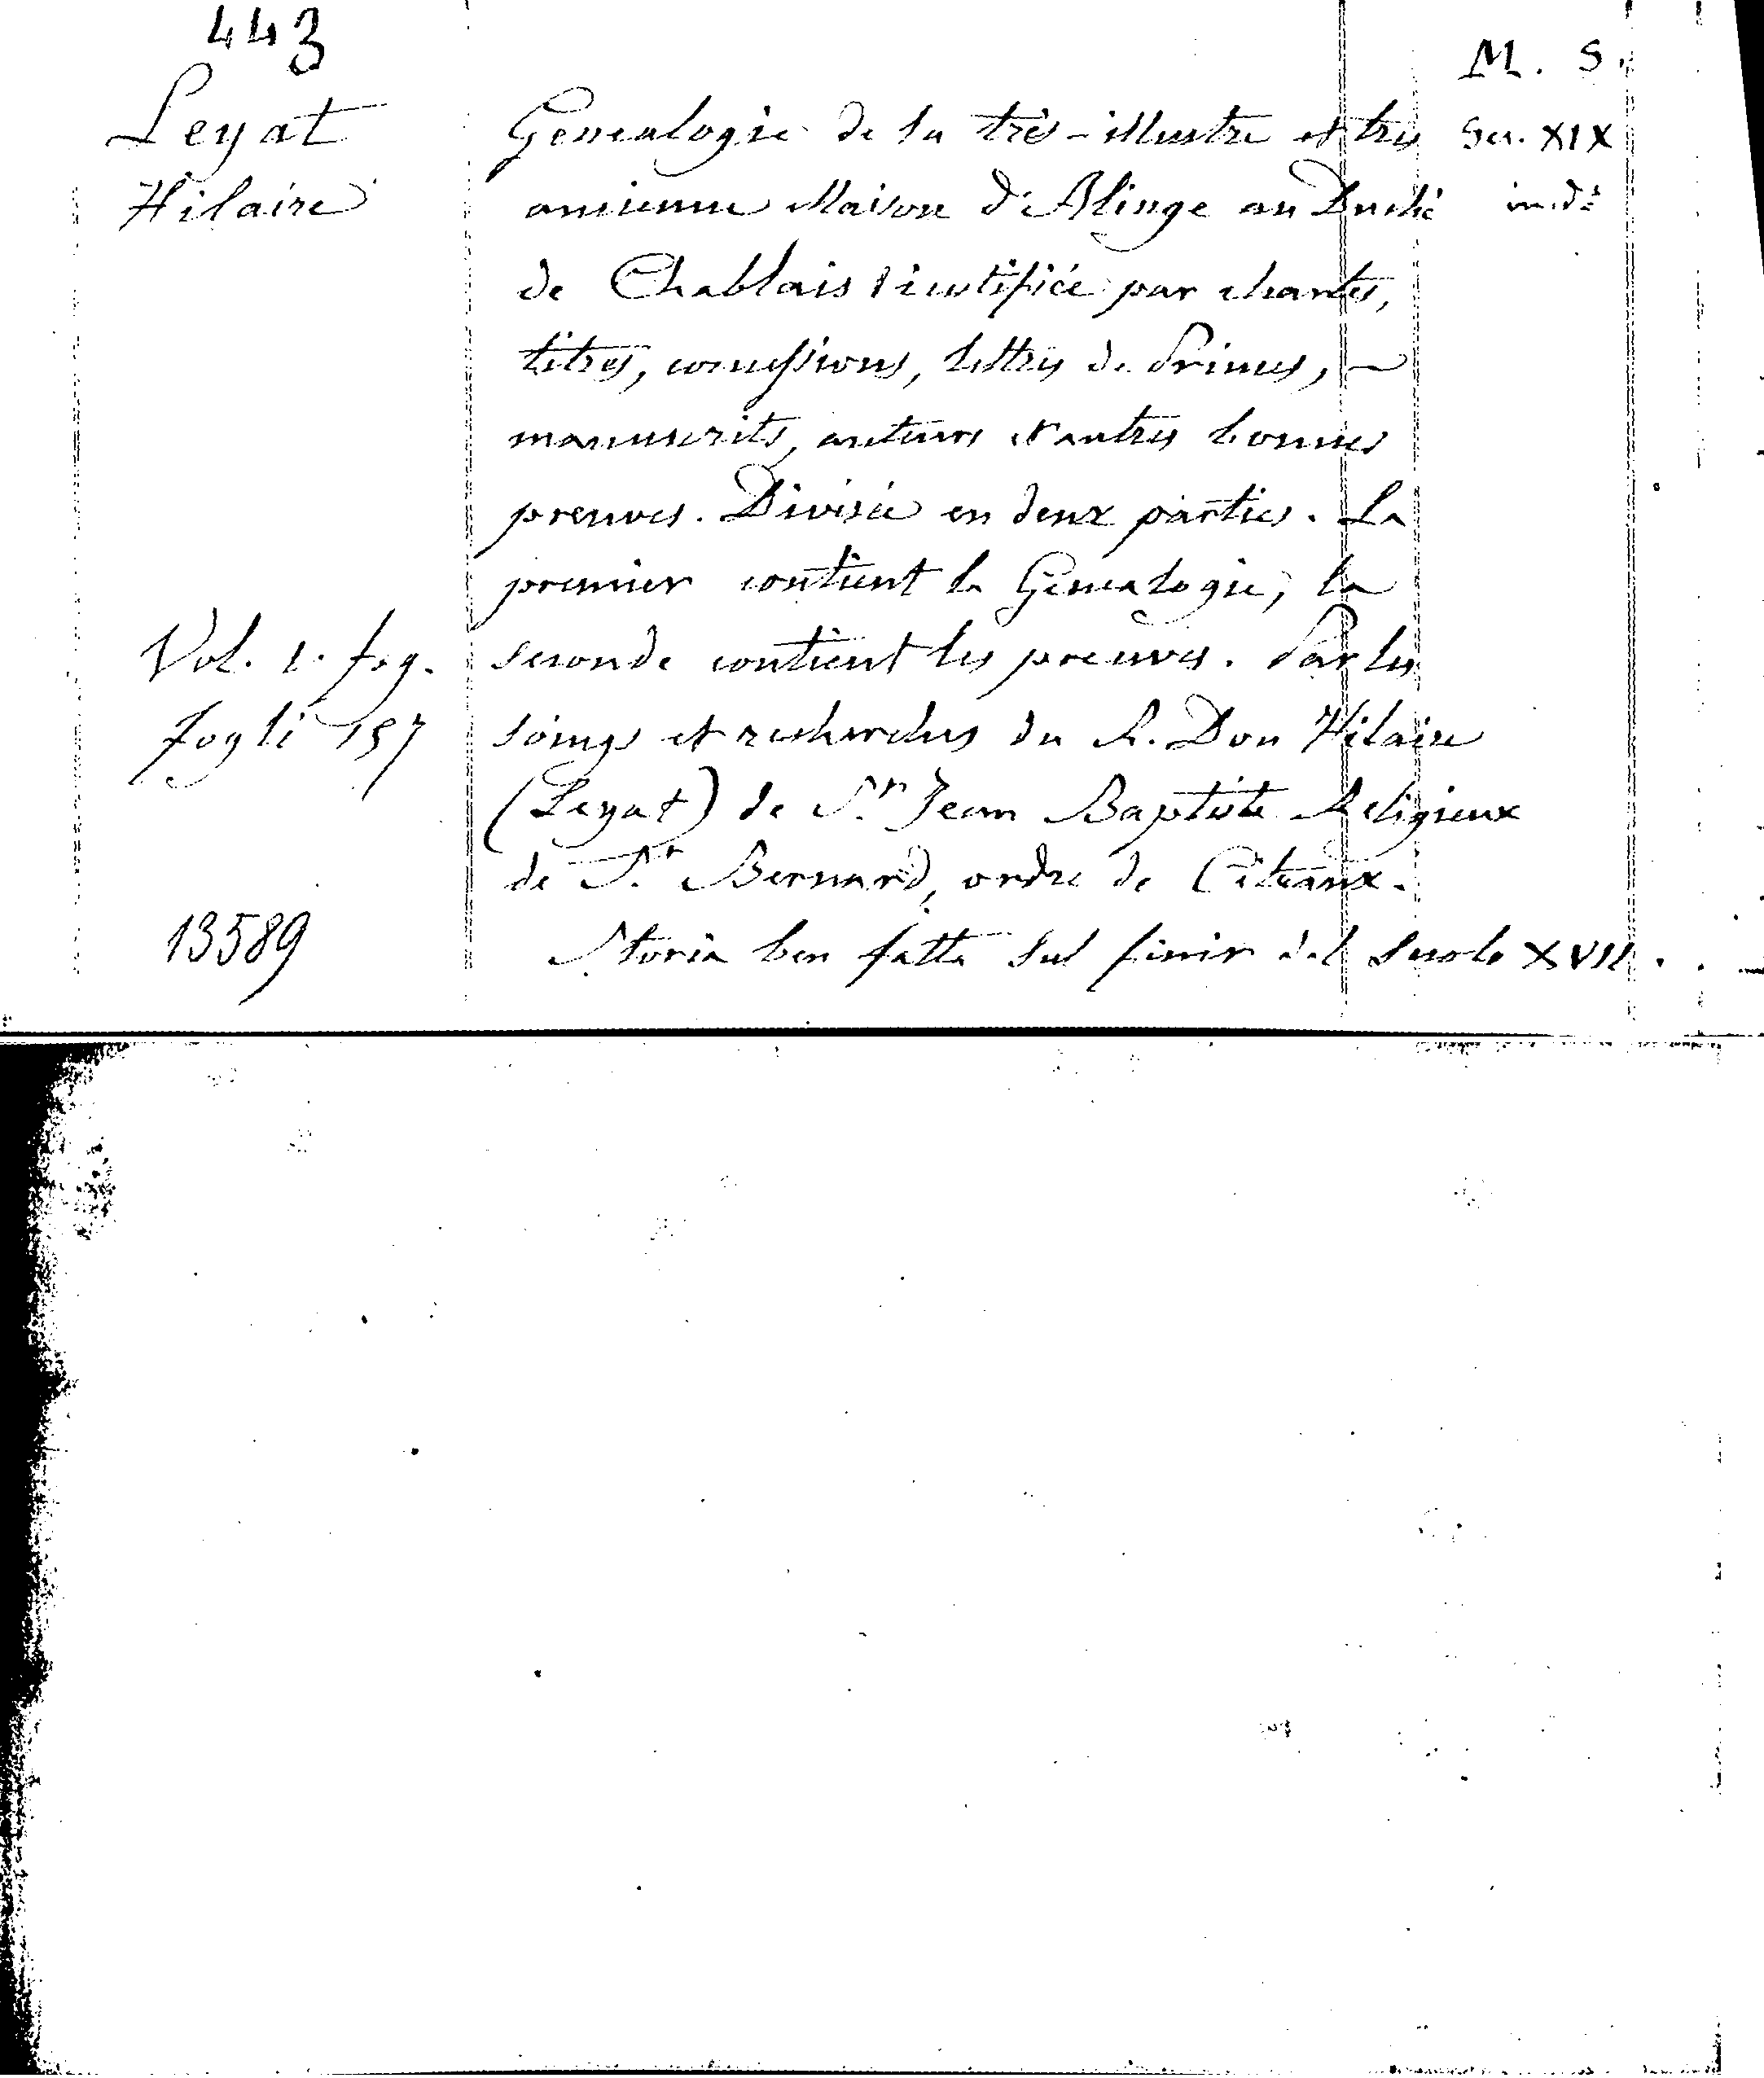 443
M. S.
Leyat
Genealogie de la très-illustre et très
Sec. XIX
Hilaire
ancienne Maison d'Alinge au Duché
de Chablais iustifiée par chartes,
titres, concessions, lettres de Princes,
manuscrits, auteurs et autres bonnes
preuves. Divisée en deux parties. La
premier contient la Genealogie, la
Vol. 1. fog.
seconde contient les preuves. Par les
fogli 157
soings et recherches du R. Don Hilaire
(Leyat) de St Jean Baptiste Religieux
de St Bernard, ordre de Citeaux.
13589
Storia ben fatta sul finir del secolo XVII.